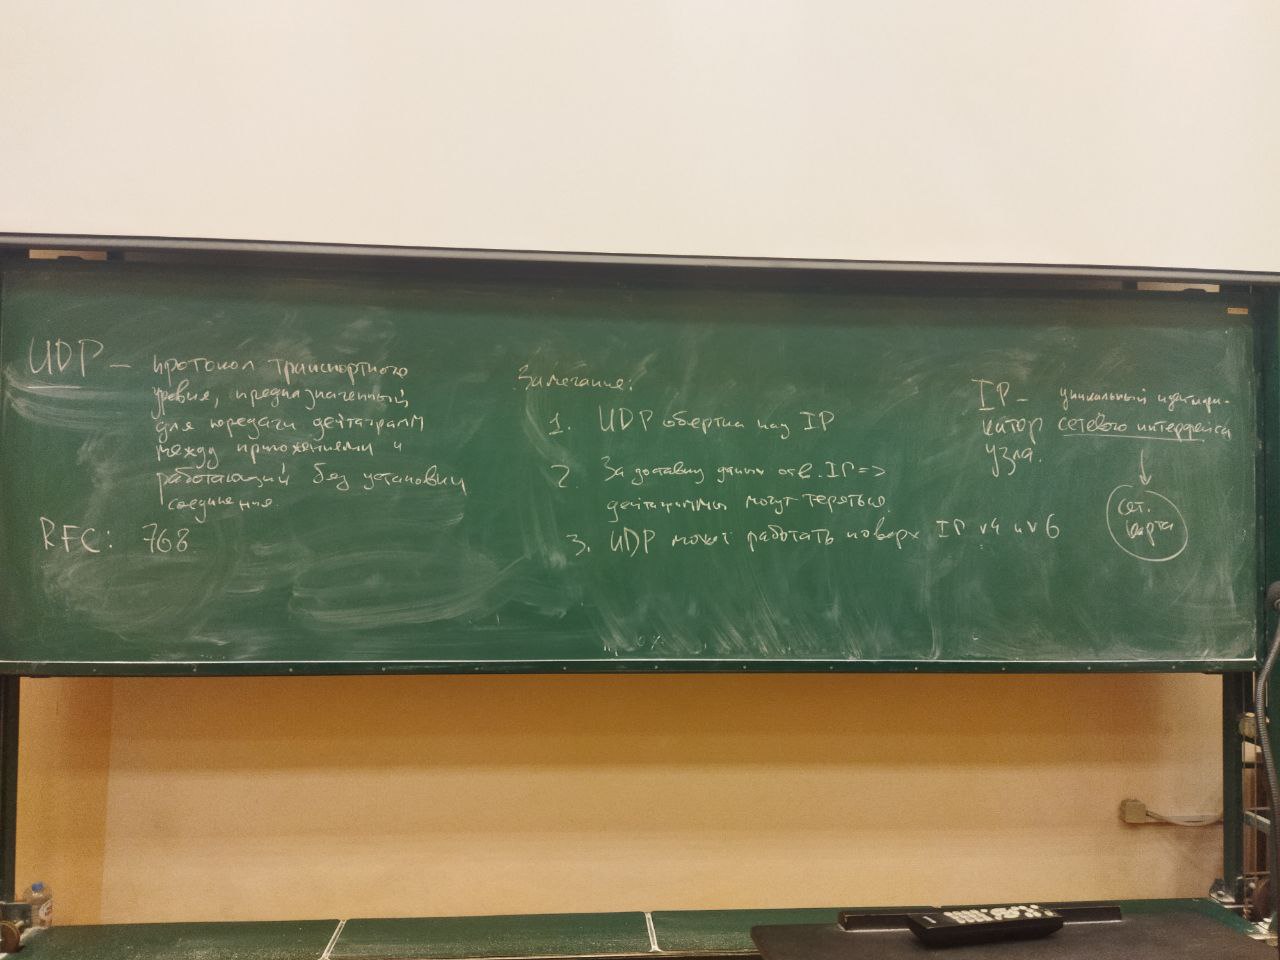 UDP — протокол транспортного
уровня, предназначенный
для передачи дейтаграмм
между приложениями и
работающий без установки
соединения.
RFC: 768
Замечание:
1. UDP обертка над IP
2. За доставку данных отв. IP =>
дейтаграммы могут теряться.
3. UDP может работать поверх IP v4 и v6
IP — уникальный идентифи-
катор сетевого интерфейса
узла.
сет.
карта